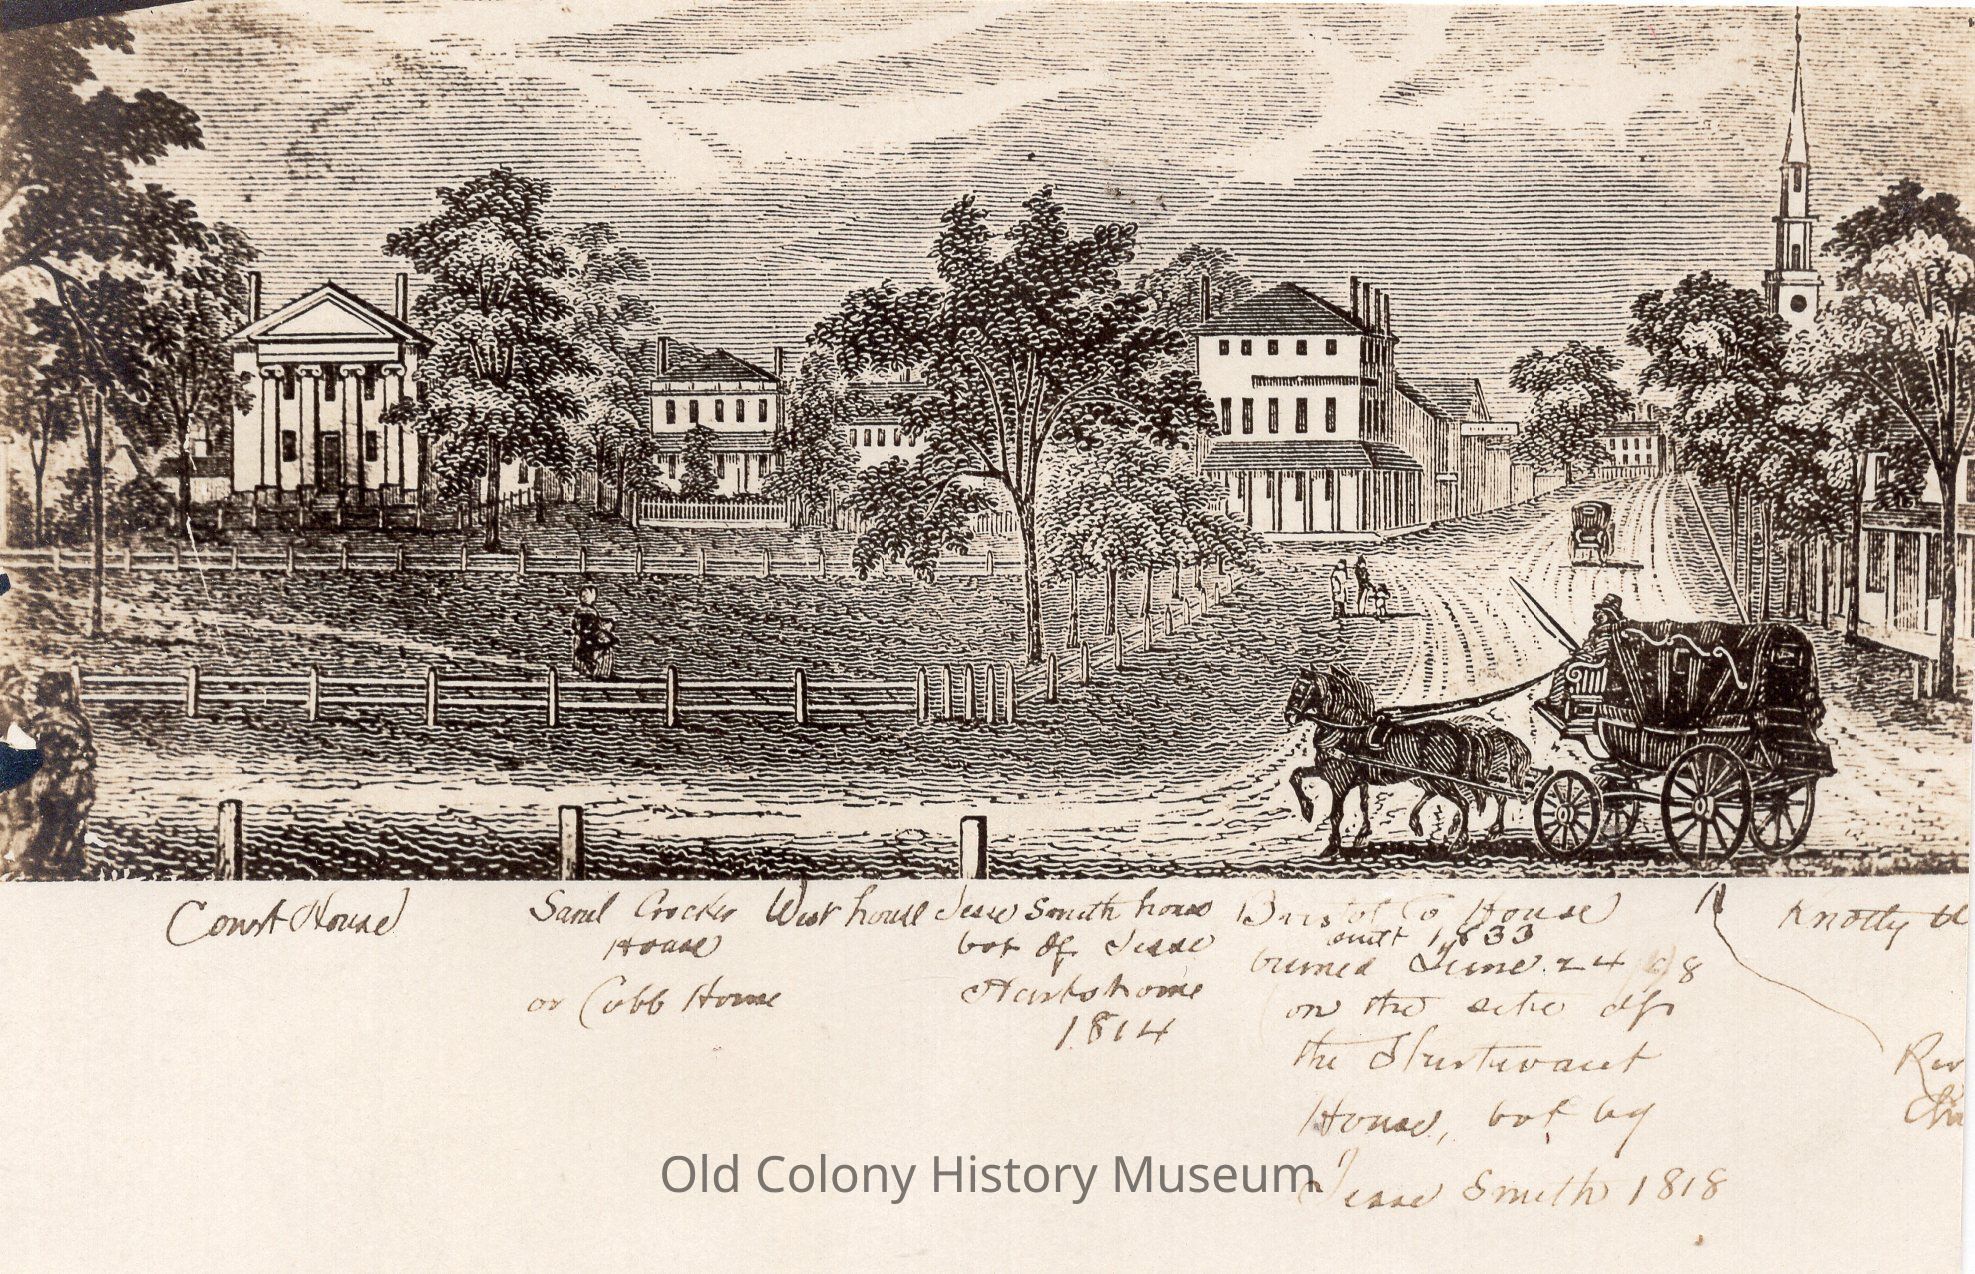 Court House
Saml Crocker
House
or Cobb House
West house
Jesse Smith house
bot of Jesse
Hartshorne
1814
Bristol Co House
built 1833
burned June 24 98
on the site of
the Sturtevant
House, bot by
Jesse Smith 1818
Knotty
Old Colony History Museum